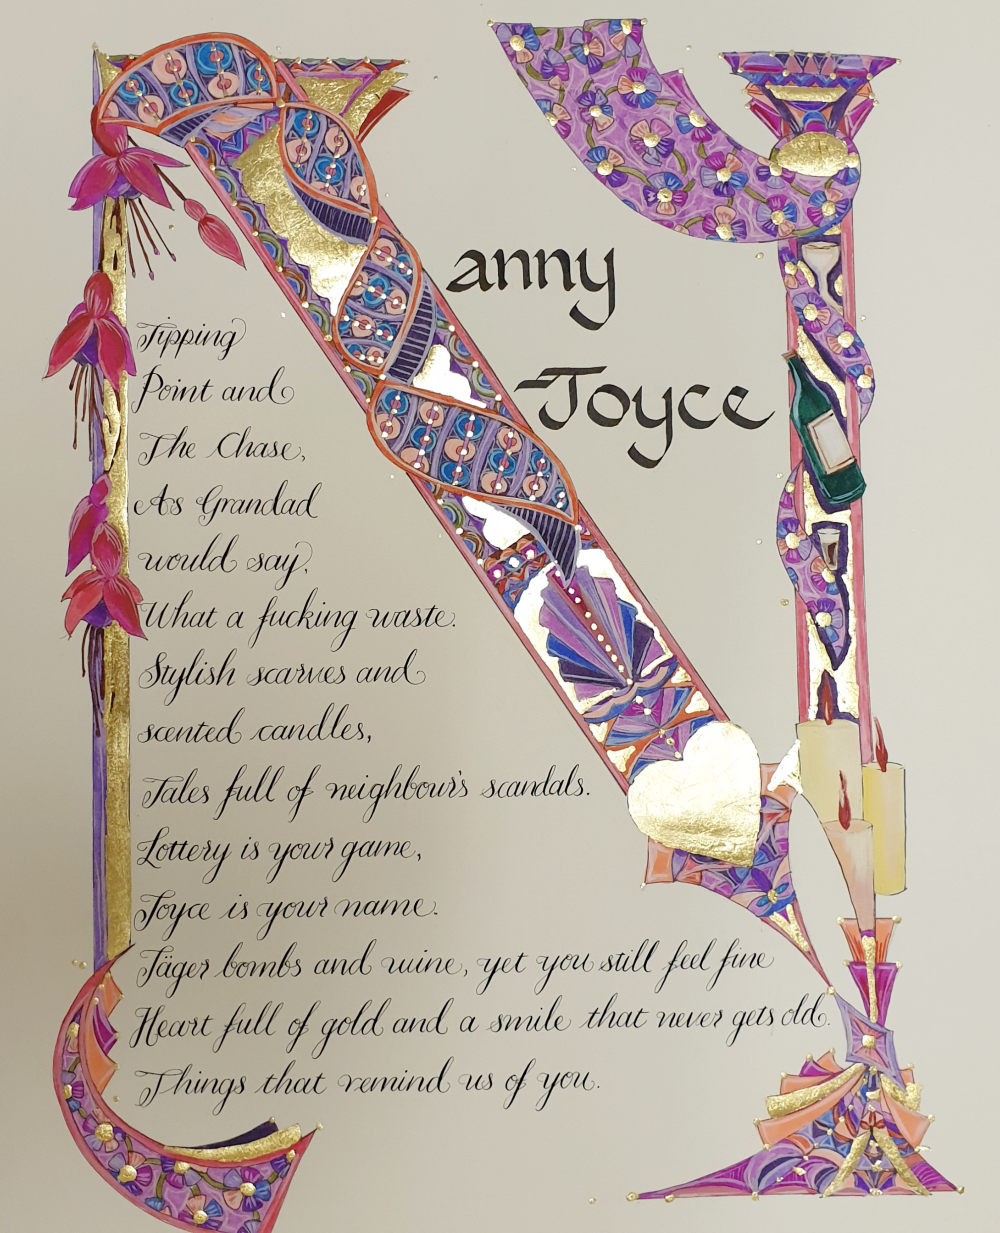 Nanny
Joyce
Tipping
Point and
The Chase,
As Grandad
would say,
What a fucking waste.
Stylish scarves and
scented candles,
Tales full of neighbour's scandals.
Lottery is your game,
Joyce is your name.
Jäger bombs and wine, yet you still feel fine
Heart full of gold and a smile that never gets old.
Things that remind us of you.